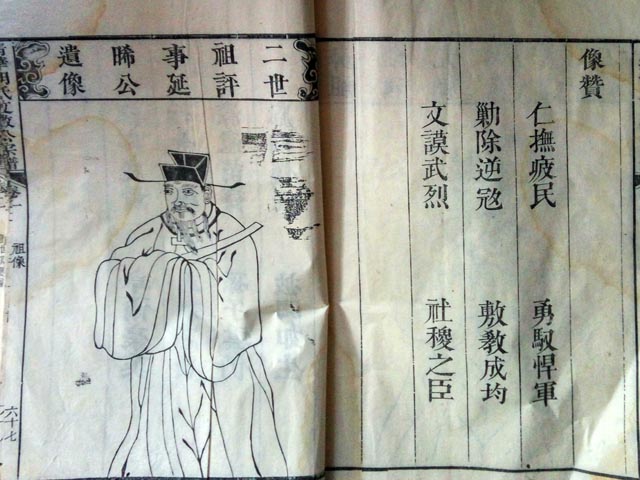 像贊
仁撫疲民 勇馭悍軍
勦除逆冦 敷敎成均
文謨武烈 社稷之臣
二世
祖評
事延
晞公
遺像
祖像
六十七